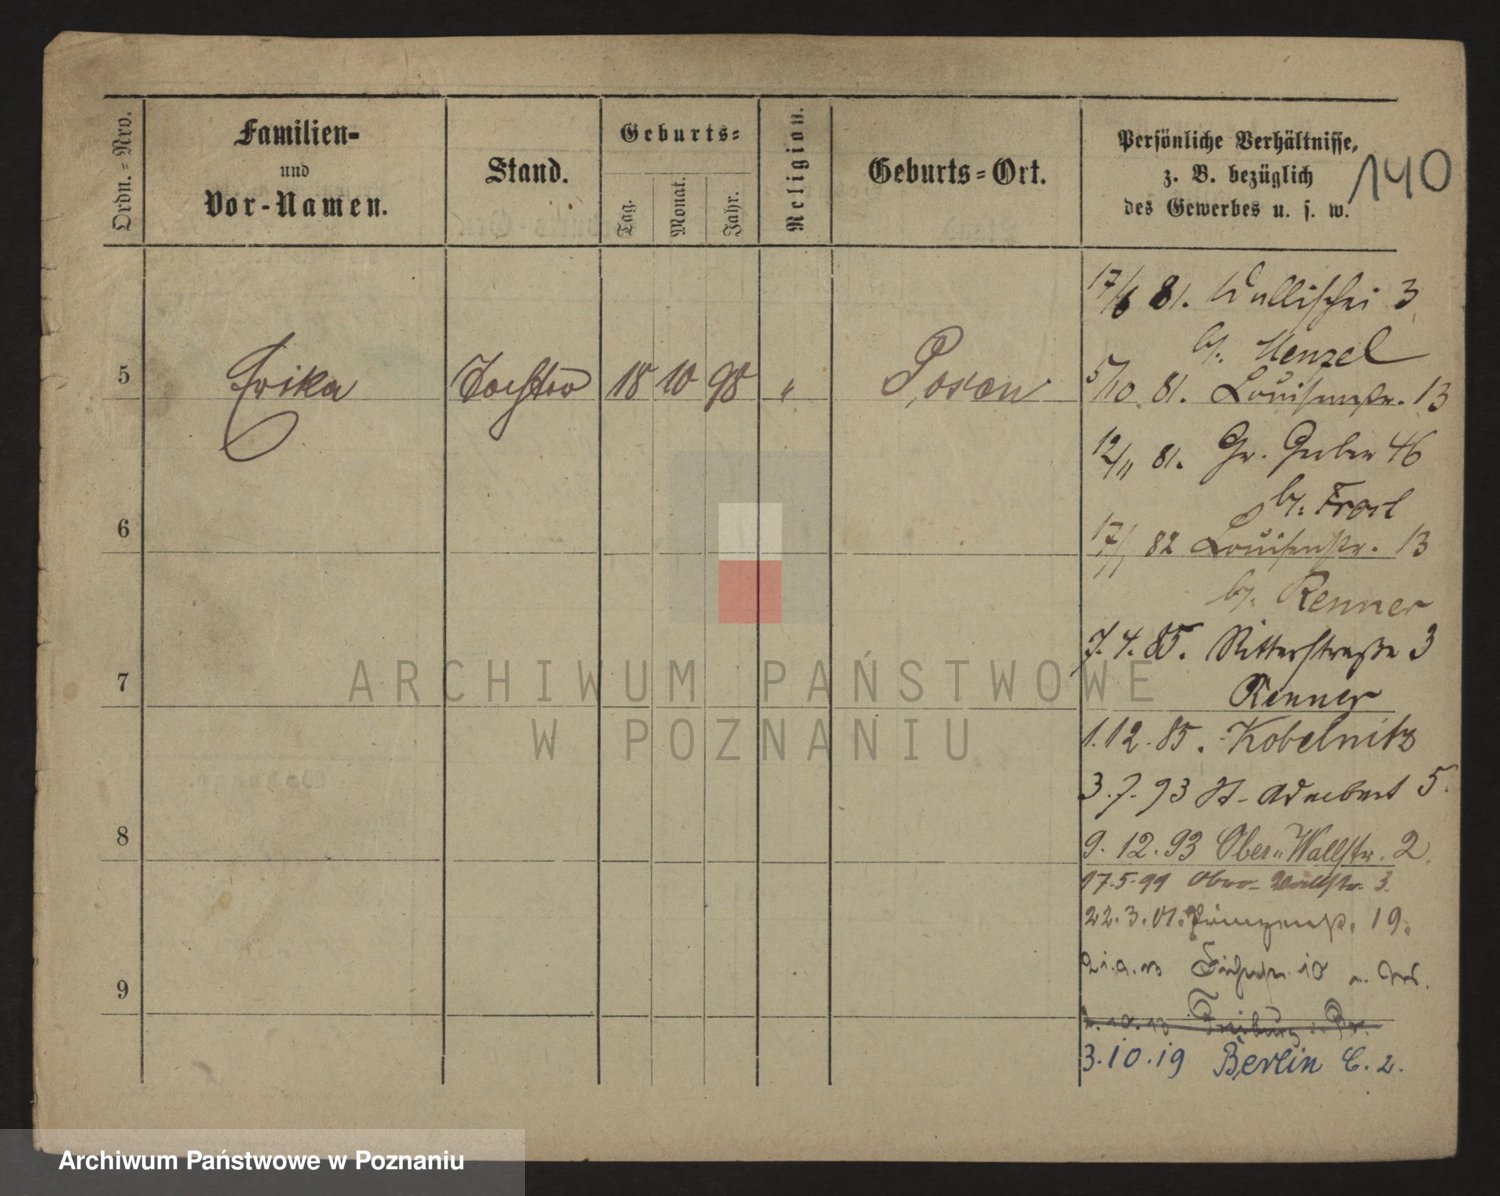 Ordn.=Nro.
Familien=
und
Vor-Namen.
Stand.
Geburts=
Tag.
Monat.
Jahr.
Religion.
Geburts=Ort.
Persönliche Verhältnisse,
z. B. bezüglich
des Gewerbes u. s. w.
140
5
Erika
Tochter
18
10
98
"
Posen
6
7
8
9
17/6 81. Wallischei 3
bei Menzel
5/10 81. Louisenstr. 13
12/11 81. Gr. Gerber 46
bei Frost
17/1 82 Louisenstr. 13
bei Renner
7.4.85. Ritterstraße 3
Renner
1.12.85. Kobelnitz
3.7.93 St. Adalbert 5.
9.12.93 Ober-Wallstr. 2.
17.5.99 Ober-Wallstr. 3.
22.3.01. Prinzenstr. 19.
10
Freiburg
3.10.19 Berlin C. 2.
ARCHIWUM PAŃSTWOWE
W POZNANIU
Archiwum Państwowe w Poznaniu